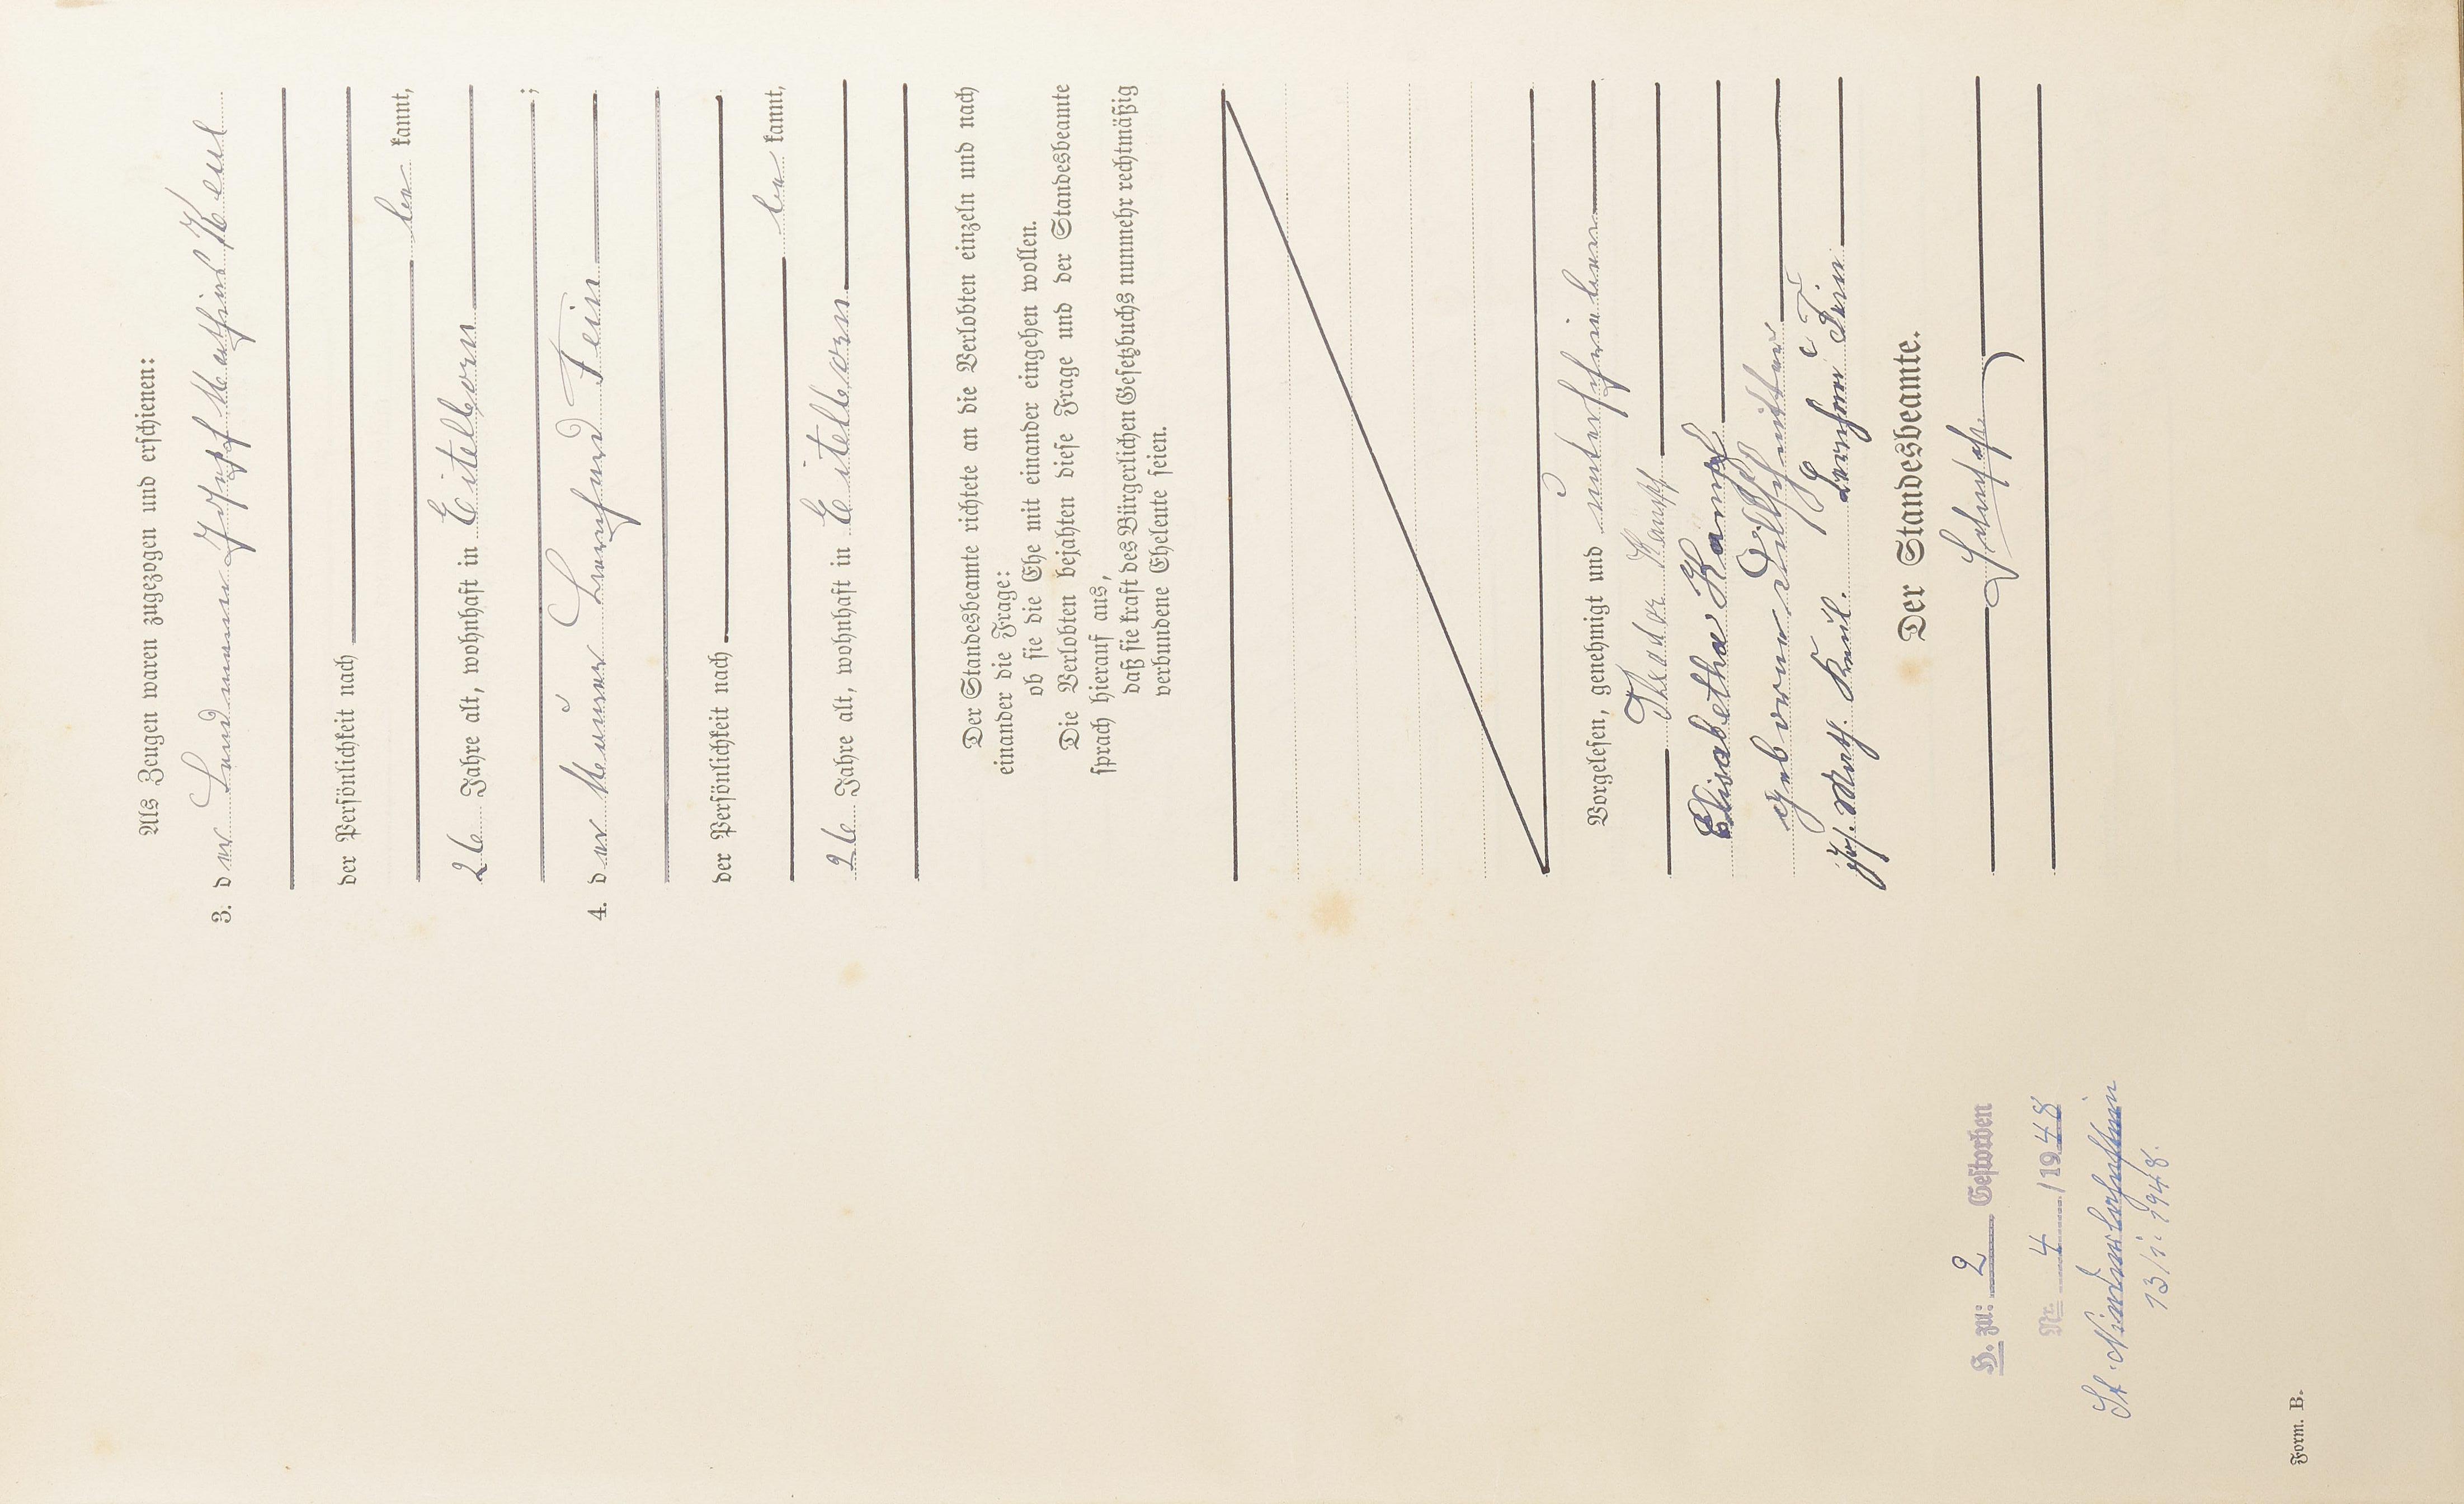 Als Zeugen waren zugezogen und erschienen:
3. der Landmann Josef Mathias Keul
der Persönlichkeit nach
be kannt,
26 Jahre alt, wohnhaft in Eitelborn
;
4. der Maurer Bernhard Fein
der Persönlichkeit nach
be kannt,
26 Jahre alt, wohnhaft in Eitelborn
Der Standesbeamte richtete an die Verlobten einzeln und nach
einander die Frage:
ob sie die Ehe mit einander eingehen wollen.
Die Verlobten bejahten diese Frage und der Standesbeamte
sprach hierauf aus,
daß sie kraft des Bürgerlichen Gesetzbuchs nunmehr rechtmäßig
verbundene Eheleute seien.
Vorgelesen, genehmigt und unterschrieben
Theodor Kampf
Elisabetha Kampf
geborene
Jos. Math. Keul. Bernhard Fein
Der Standesbeamte.
H. zu: 2 Gestorben
Nr. 4 /1948
St. Niederlahnstein
13/1. 1948.
Form. B.